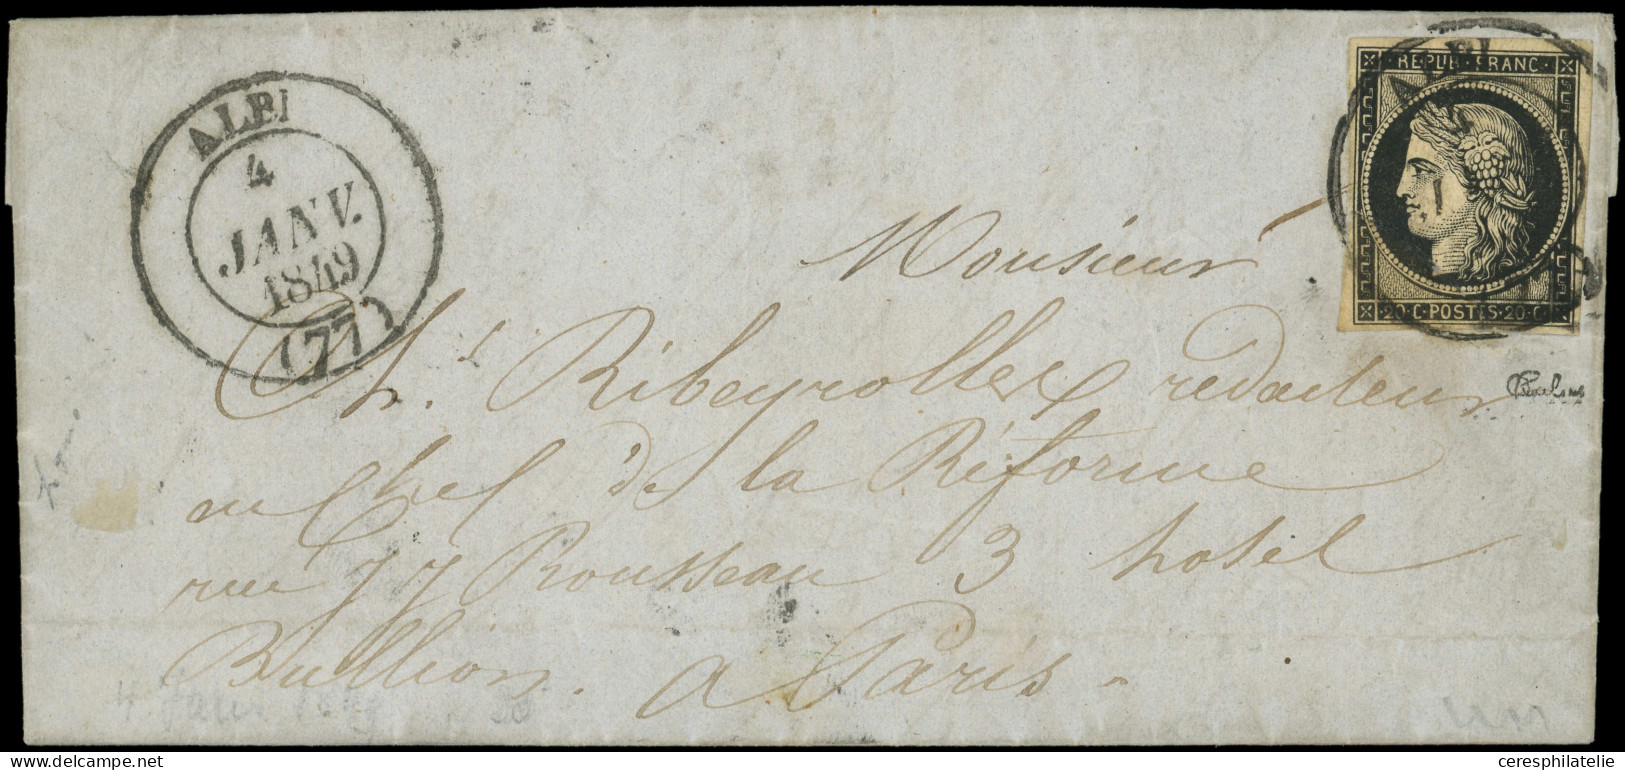 ALBI
4
JANV.
1849
(77)
REPUB. FRANC.
20·C·POSTES·20·C
ALBI
Monsieur
Ch. Ribeyrolles redacteur
en Chef de la Réforme
rue JJ Rousseau 3 hotel
Bullion. a Paris -
4 Janv 1849
ceresphilatelie